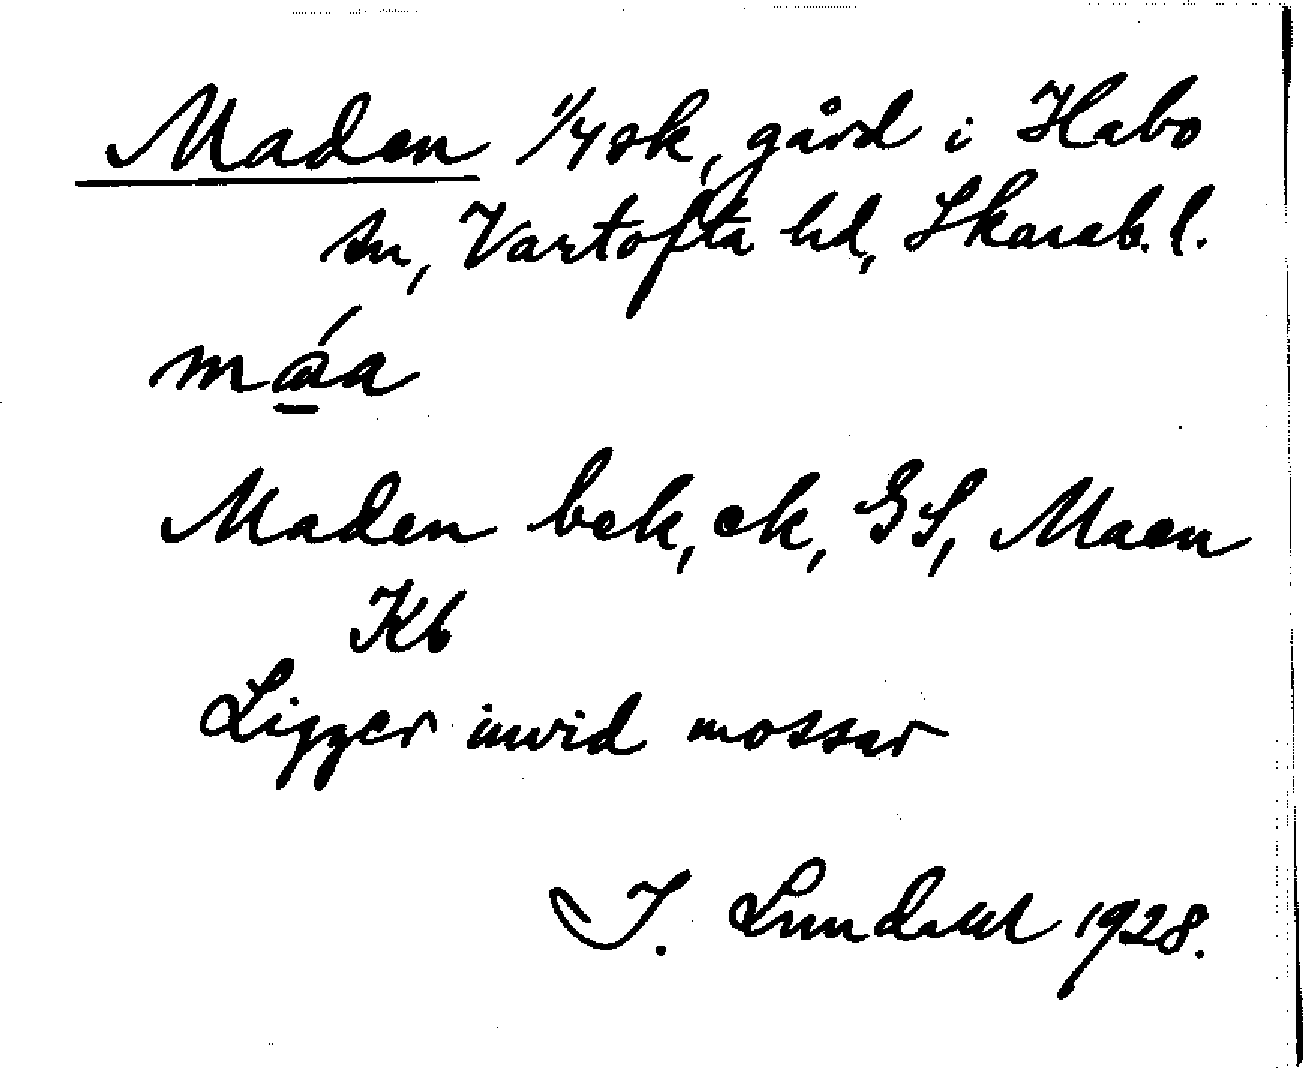 Maden 1/4 sk, gård i Habo
sn, Vartofta hd, Skarab. l.
máa
Maden bek, ek, GS, Maen
Kb
Ligger invid mossar
I. Lundahl 1928.